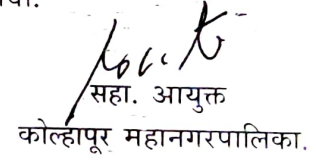 सहा. आयुक्त
कोल्हापूर महानगरपालिका.